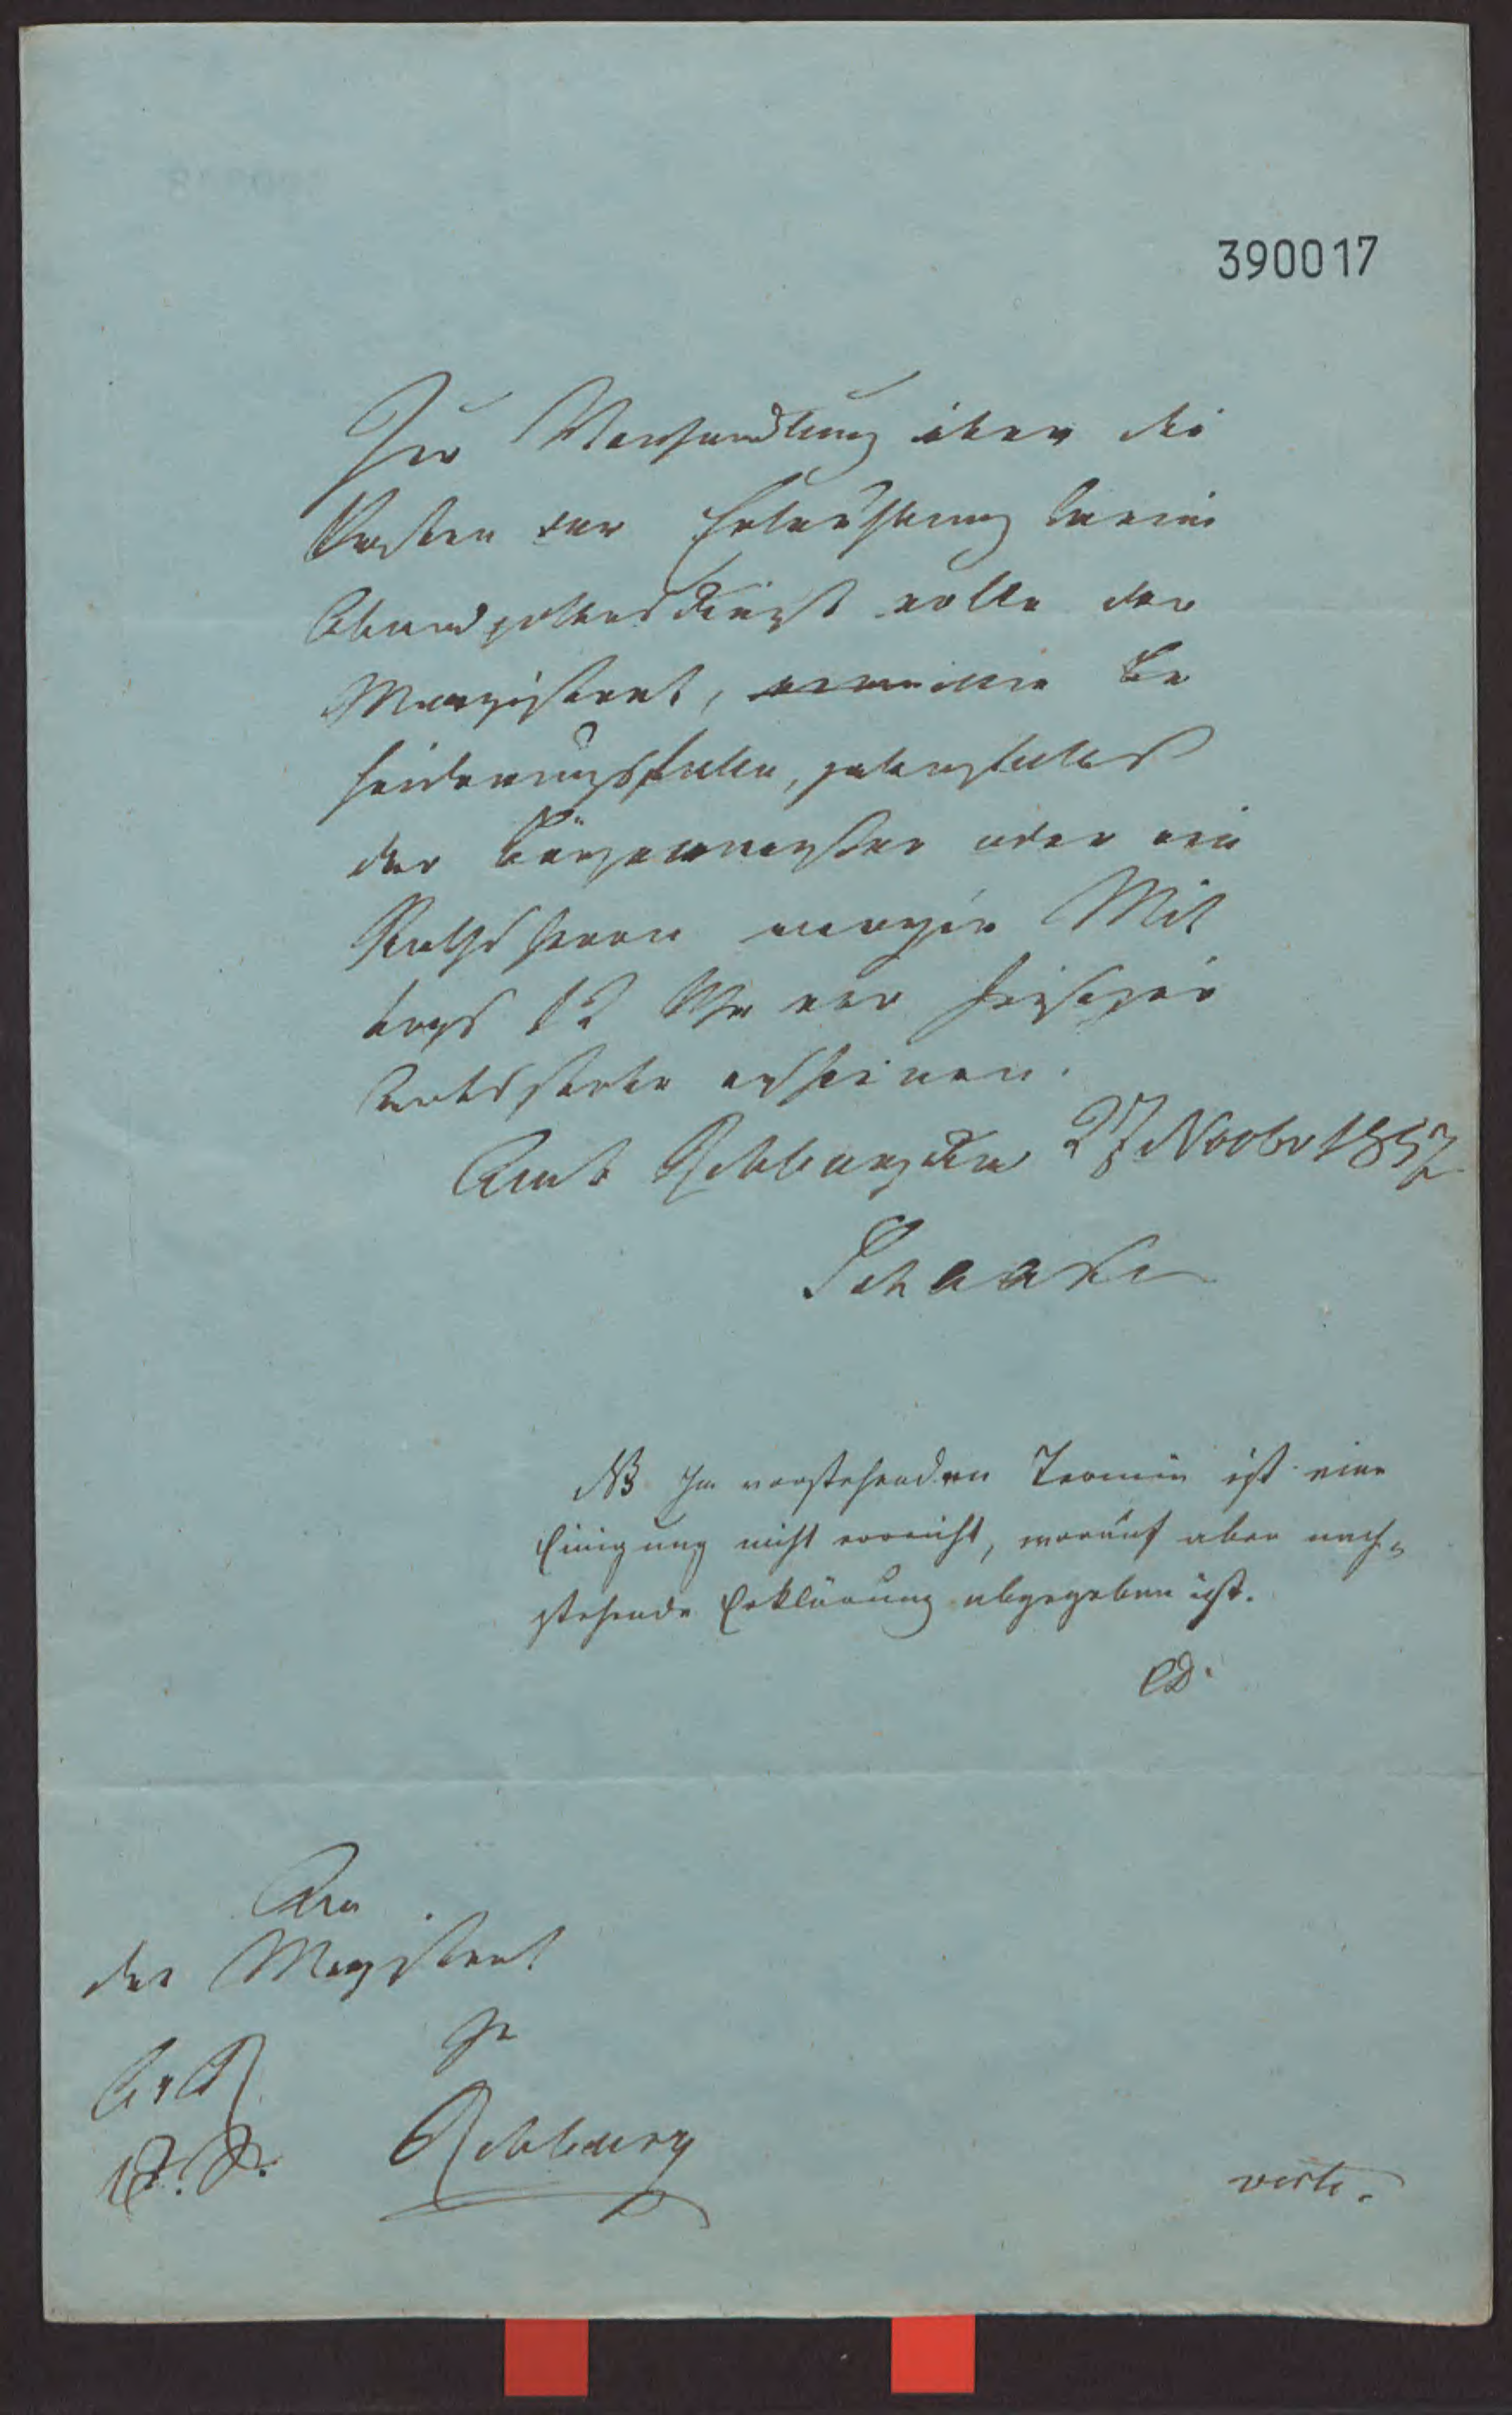 390017
Zur Verhandlung über die
Kosten der Erleuchtung beim
Abendgottesdienst wolle der
Magistrat, Be
hinderungsfalle, jedenfalls
der Bürgermeister oder ein
Rathsherr morgen Mit
tags 12 Uhr vor hiesiger
Amtsstube erscheinen.
Amt Rehburg den 27 Novbr 1857
Schaaf
NB Im vorstehenden Termin ist eine
Einigung nicht erreicht, worauf aber nach=
stehende Erklärung abgegeben ist.
An
den Magistrat
zu
Rehburg
verte.